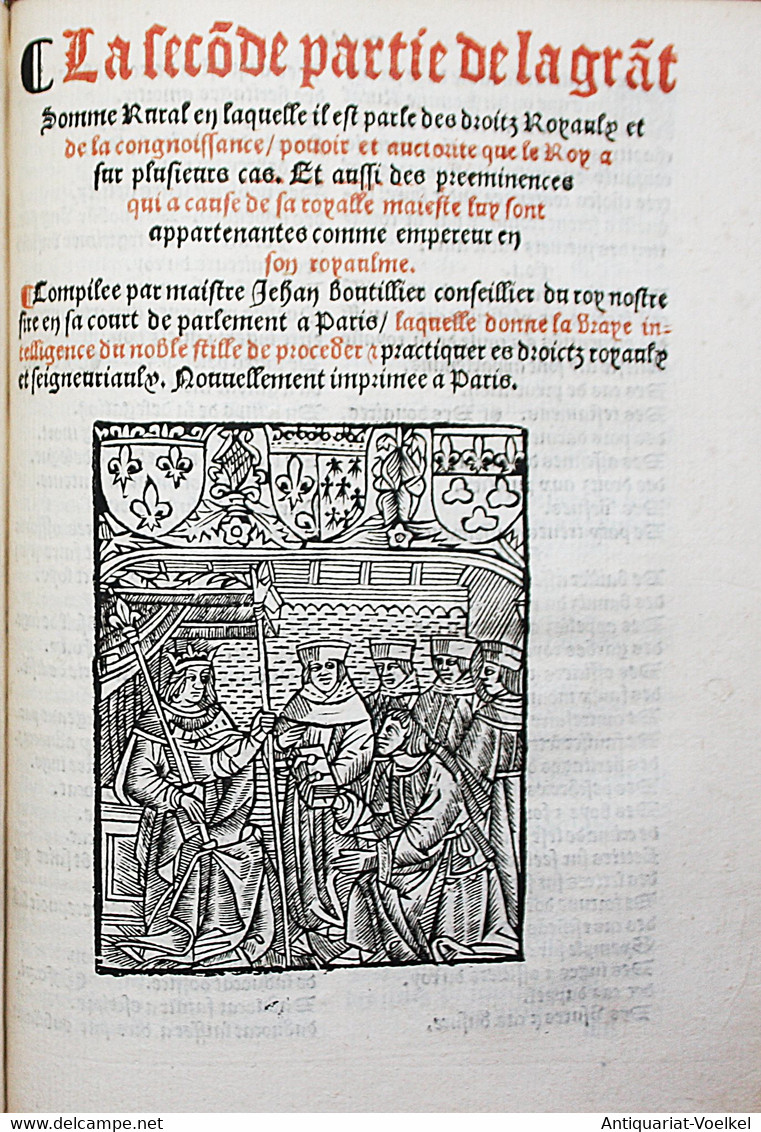 ¶ La secõde partie de la grãt
Somme Rural en laquelle il est parle des droitz Royaulx et
de la congnoissance/ pouoir et auctorite que le Roy a
sur plusieurs cas. Et aussi des preeminences
qui a cause de sa royalle maieste luy sont
appartenantes comme empereur en
son royaulme.
¶ Compilee par maistre Jehan Boutillier conseillier du roy nostre
sire en sa court de parlement a Paris/ laquelle donne la vraye in-
telligence du noble stille de proceder ⁊ practiquer es droictz royaulx
et seigneuriaulx. Nouuellement imprimee a Paris.
Antiquariat-Voelkel